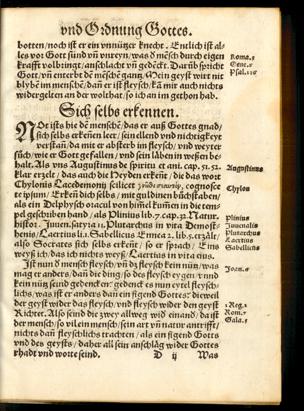 vnd Ordnung Gottes.
botten/noch ist er ein vnnützer knecht. Entlich ist al-
les vor Gott sünd vñ vnreyn/was d mẽsch durch eigen
krafft volbringt/anschlacht vñ gedeckt. Darũb spricht
Gott/vñ enterbt dẽ mẽschẽ gang. Mein geyst wirt nit
blybẽ im mensche/dañ er ist fleysch/kã mir auch nichts
widergelten an der wolthat/so ich an im gethon hab.
Roma.
Gene.
Psal.
Sich selbs erkennen.
NOt ists hie dẽ menschẽ/das er auß Gottes gnad/
sich selbs erkẽnen leer/sein ellend vnd nichtigkeyt
verstañ/da mit er absterb im fleysch/vnd weyter
süch/wie er Gott gefallen/vnd sein läben in weßen be-
halt. Als vns Augustinus de spiritu et ani. cap. 51. 52.
klar erzelt/das auch die Heyden erkeñt/die das wort
Chylonis Lacedemonij scilicet cognosce
te ipsum/Erkeñ dich selbs/mit guldinen büchstaben/
als ein Delphysch oracel von himel kummen in die tem-
pel geschriben hand/als Plinius lib. 7. cap. 32. Natur.
histor. Juuen. satyra 11. Plutarchus in vita Demost-
henis/Laertius li. Sabellicus Ennea 2. lib. 5. erzält/
also Socrates sich selbs erkeñt/so er sprach/Eins
weyß ich/das ich nichts weyß/Laertius in vita eius.
Augustinus
Chylon
Plinius
Juuenalis
Plutarchus
Laertius
Sabellicus
Ist nun d mensch fleysch/vñ dz fleysch kein nütz/was
mag er anders/dañ die ding/so des fleysch eygen vnd
kein nütz seind gedencken: gedenckt es nun eytel fleysch-
lichs/was ist er anders dañ ein figend Gottes: dieweil
der geyst wider das fleysch/vnd fleysch wider den geyst
Richtet. Also seind die zwey allweg wid einand/da ist
der mensch/so vil ein mensch/sein art vñ natur antrifft/
nichts dañ fleyschlichs trachten/als ein figend Gottes
vnd des geysts/daher all sein anschläg wider Gottes
rhadt vnd worte seind.
Joan.
Reg.
Rom.
Gala.
D ij
Was